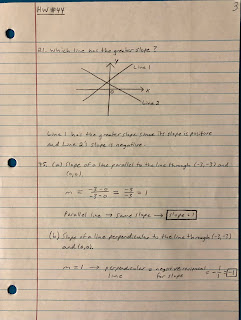 HW #44
3
21. Which line has the greater slope?
y
Line 1
x
Line 2
Line 1 has the greater slope since its slope is positive
and Line 2's slope is negative.
(a) Slope of a line parallel to the line through
and
(0,0).
m = = = 1
Parallel line → same slope → slope = 1
(b) Slope of a line perpendicular to the line through
and (0,0).
m = 1 → perpendicular line = negative reciprocal for slope = -1/1 = -1